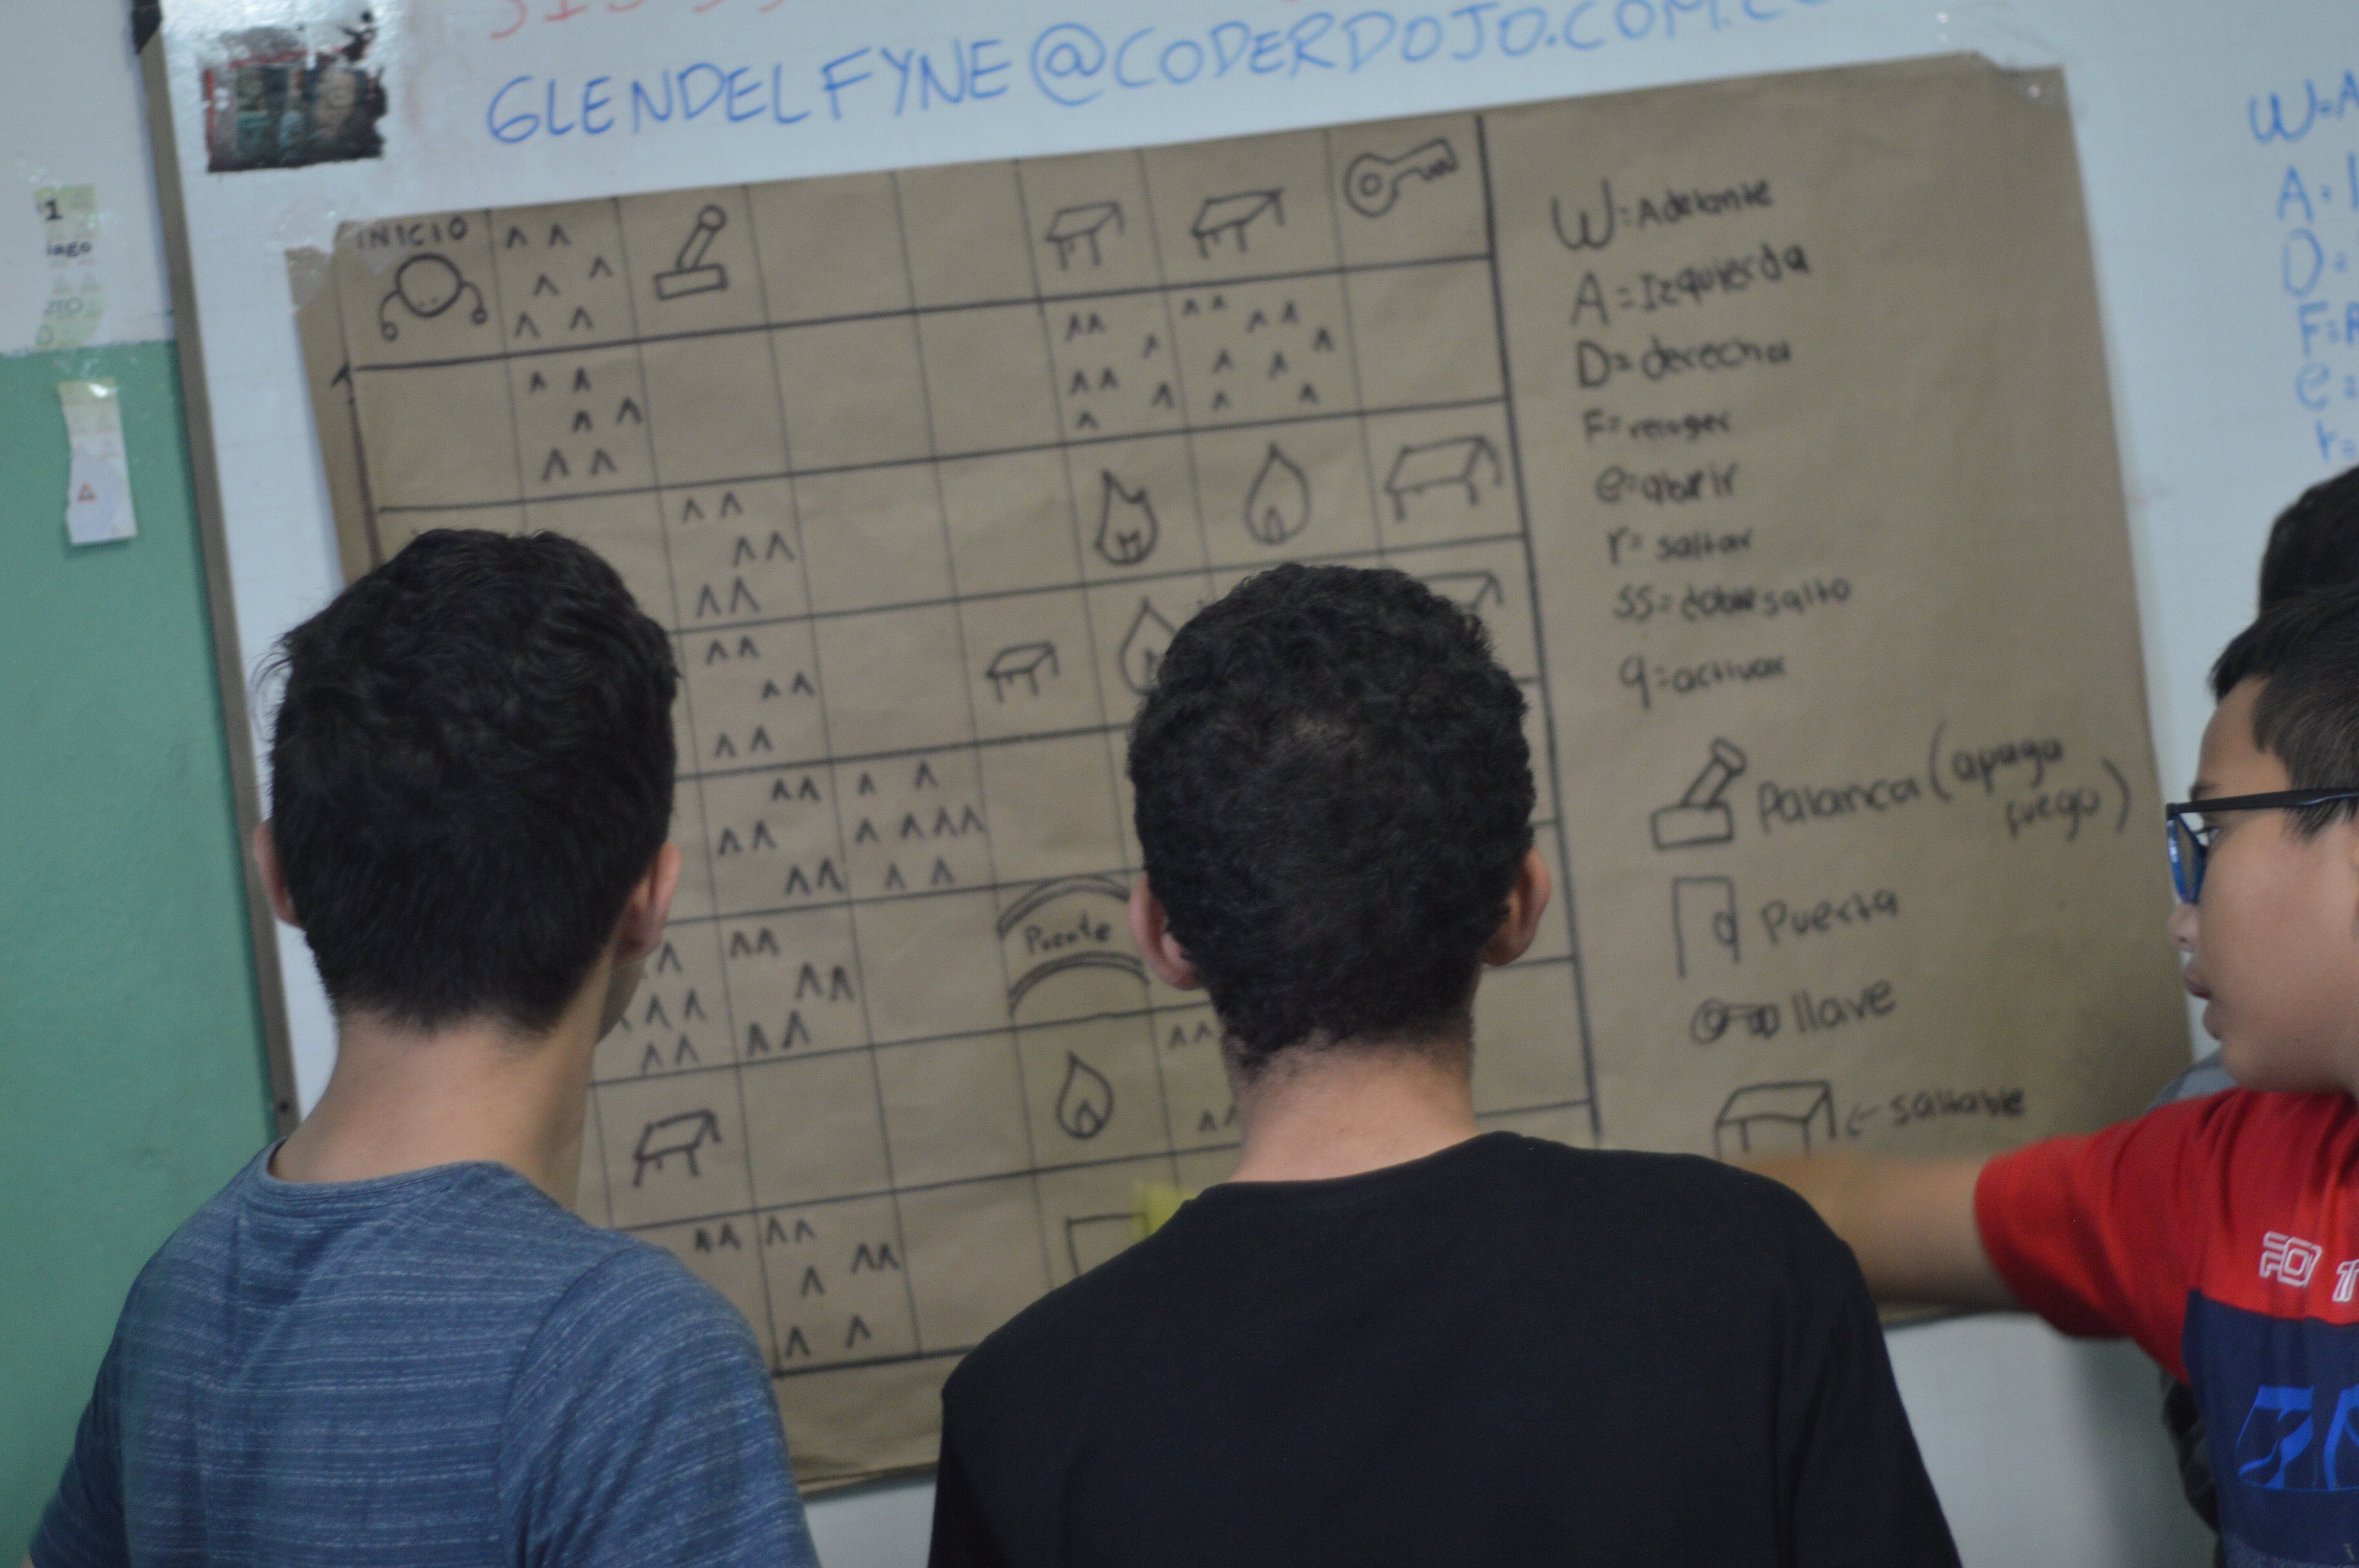 GLENDELFYNE@CODERDOJO.COM.
INICIO
W=Adelante
A=Izquierda
D=derecha
F=recoger
e=abrir
r=saltar
SS=doble salto
q=activar
Palanca (apaga
fuego)
Puerta
llave
saltable
Puente
W=A
A=
D=
F=R
e=
r=
1
iago